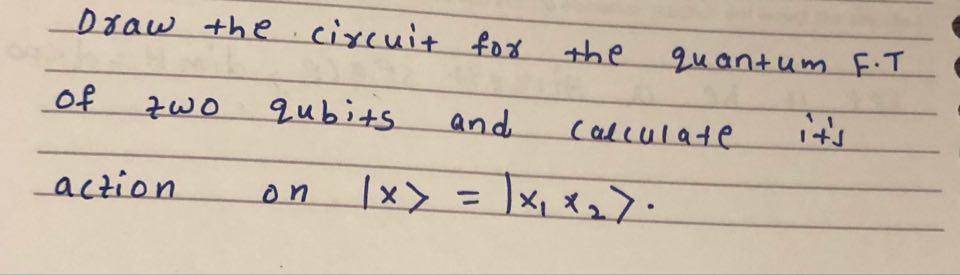 Draw the circuit for the quantum F.T
of two qubits and calculate it's
action on |x> = |x₁ x₂>.